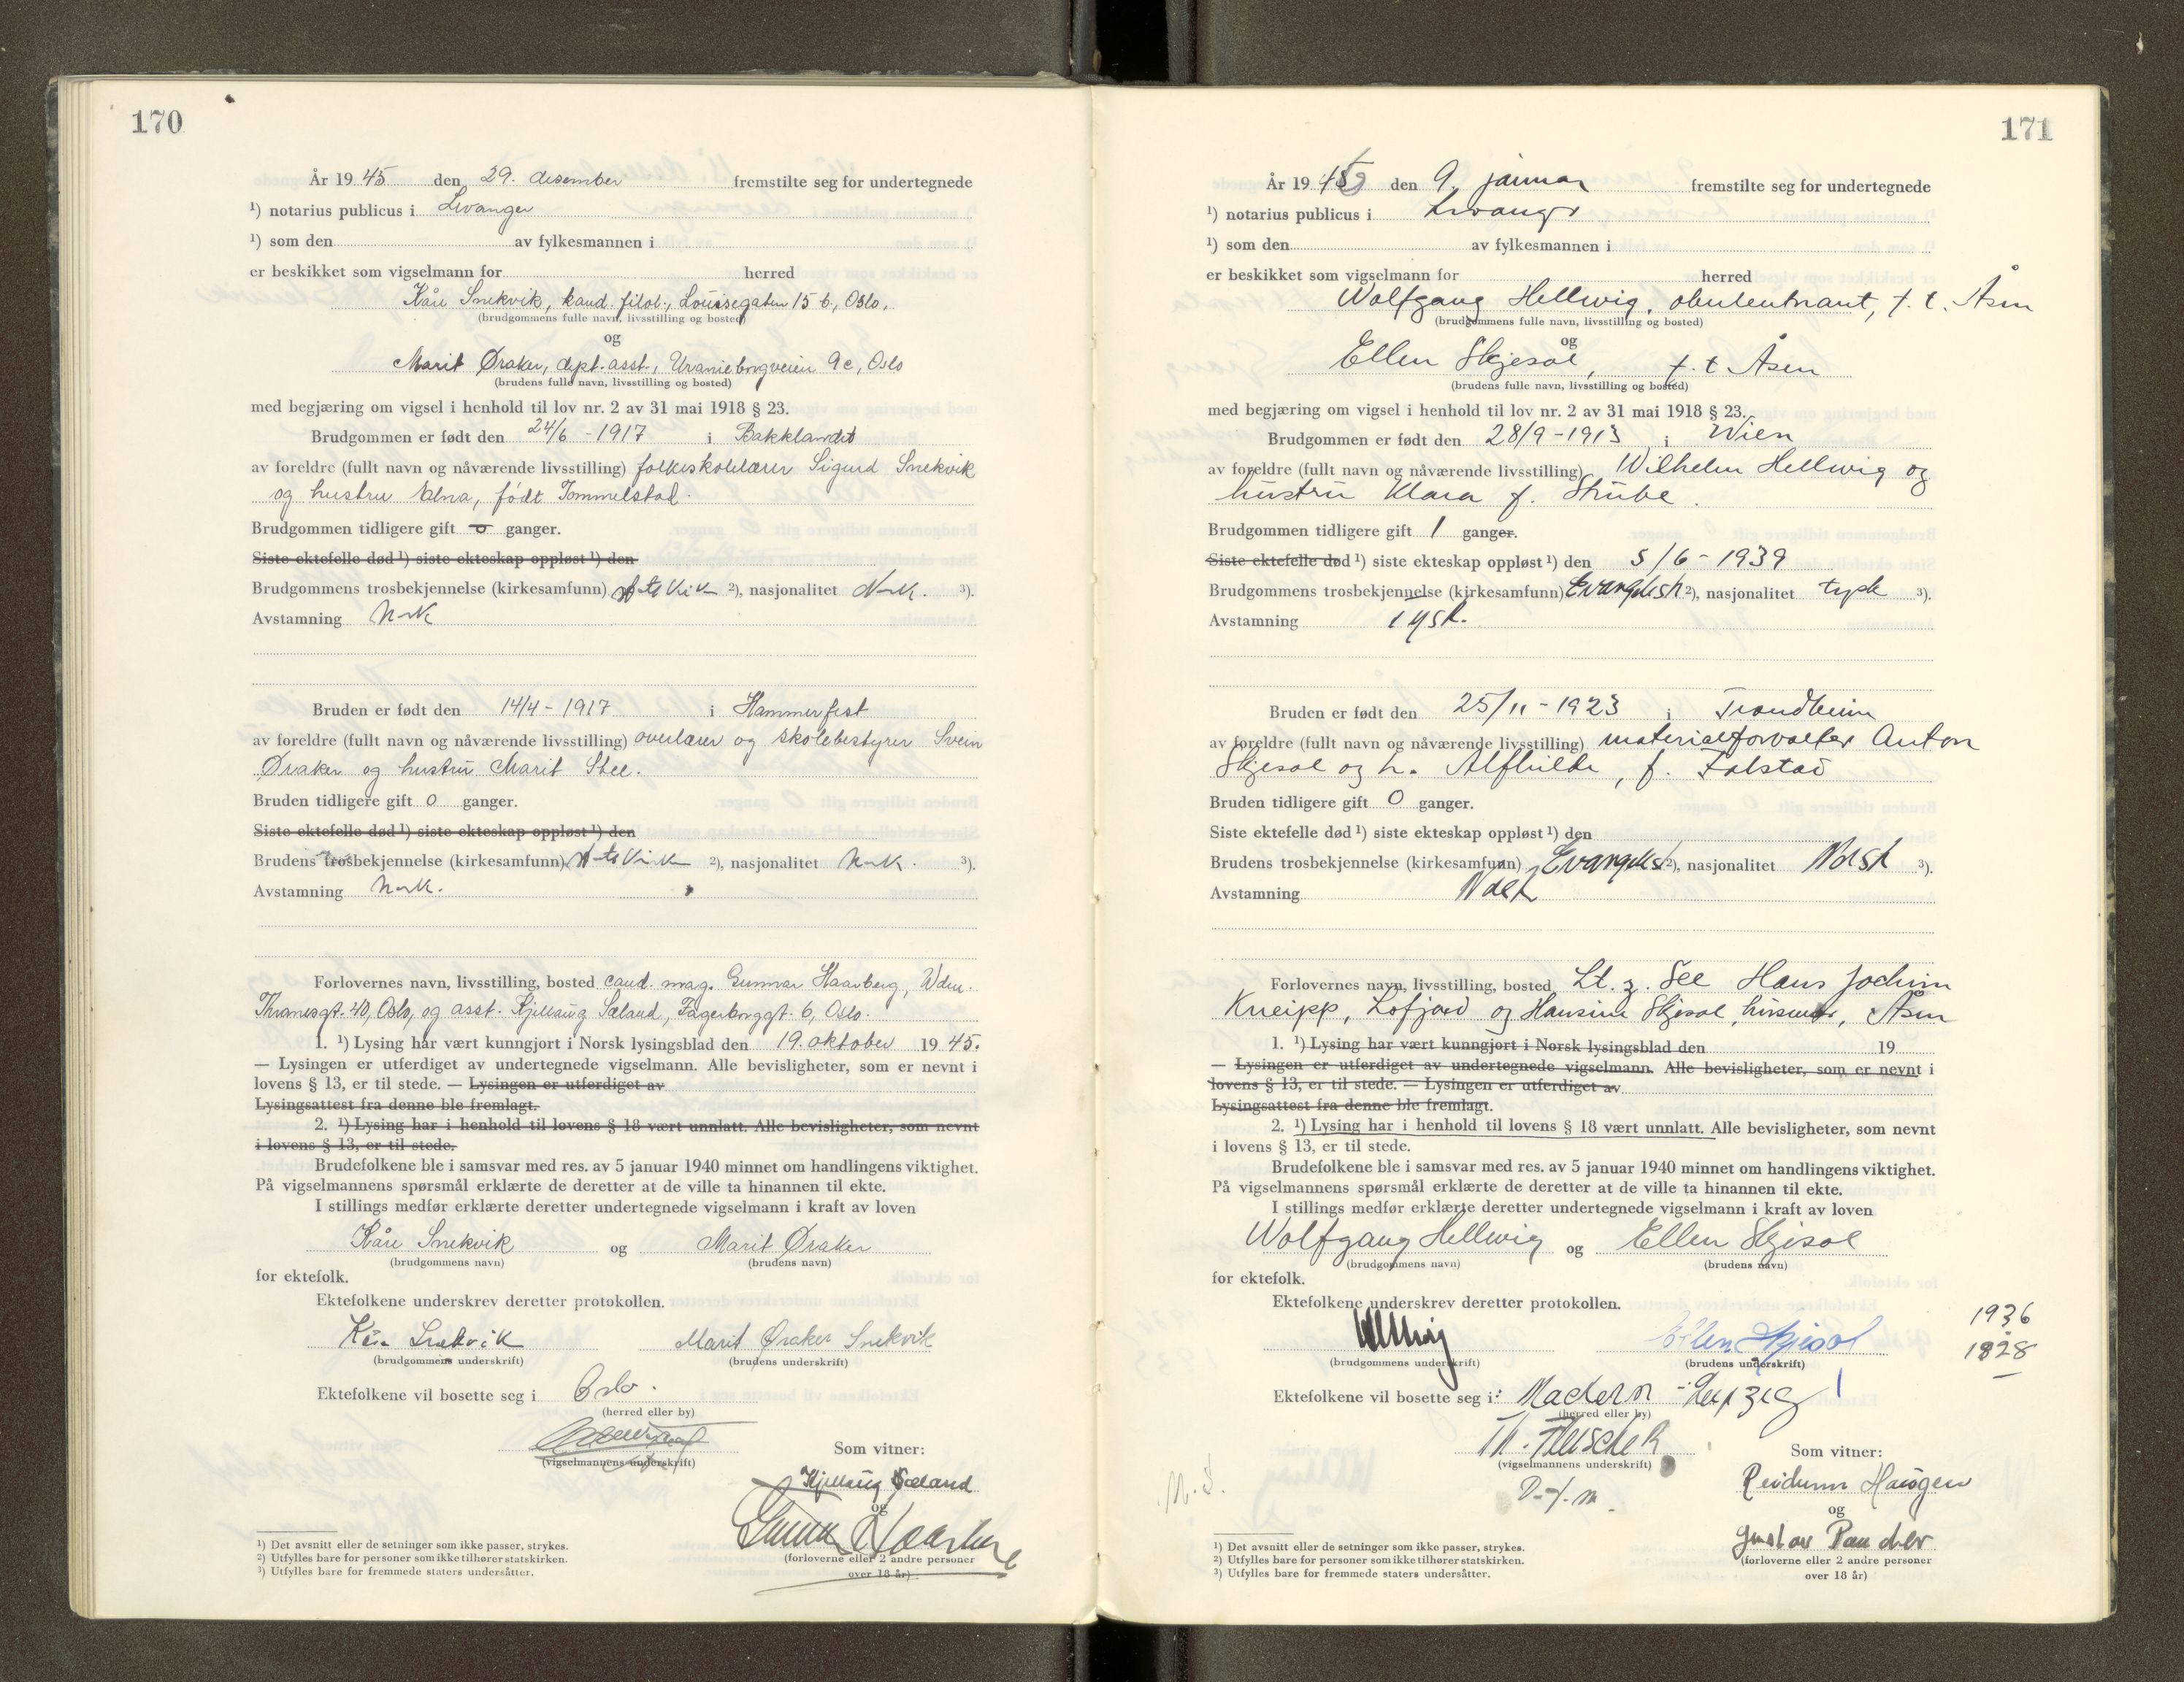 170
År 19 45 den 29. desember fremstilte seg for undertegnede
¹) notarius publicus i Levanger
¹) som den av fylkesmannen i
er beskikket som vigselmann for herred
Kåre Snekvik, kand. filol., Louisegaten 15 b, Oslo.
(brudgommens fulle navn, livsstilling og bosted)
og
Marit Øraker, dept. asst., Uranieborgveien 9c, Oslo
(brudens fulle navn, livsstilling og bosted)
med begjæring om vigsel i henhold til lov nr. 2 av 31 mai 1918 § 23.
Brudgommen er født den 24/6 - 1917 i Bakklandet
av foreldre (fullt navn og nåværende livsstilling) folkeskolelærer Sigurd Snekvik
og hustru Edna, født Tommelstad.
Brudgommen tidligere gift 0 ganger.
Siste ektefelle død ¹) siste ekteskap oppløst ¹) den
Brudgommens trosbekjennelse (kirkesamfunn) ²), nasjonalitet Norsk. ³).
Avstamning Norsk
Bruden er født den 14/4 - 1917 i Hammerfest
av foreldre (fullt navn og nåværende livsstilling) overlærer og skolebestyrer Svein
Øraker og hustru Marit Stee.
Bruden tidligere gift 0 ganger.
Siste ektefelle død ¹) siste ekteskap oppløst ¹) den
Brudens trosbekjennelse (kirkesamfunn) ²), nasjonalitet Norsk. ³).
Avstamning Norsk.
Forlovernes navn, livsstilling, bosted cand. mag. Gunnar Haarberg, Wdm.
Thranesgt. 40, Oslo, og asst. Kjellaug Sæland, Fagerborggt. 6, Oslo.
1. ¹) Lysing har vært kunngjort i Norsk lysingsblad den 19. oktober 19 45.
— Lysingen er utferdiget av undertegnede vigselmann. Alle bevisligheter, som er nevnt i
lovens § 13, er til stede. — Lysingen er utferdiget av
Lysingsattest fra denne ble fremlagt.
2. ¹) Lysing har i henhold til lovens § 18 vært unnlatt. Alle bevisligheter, som nevnt
i lovens § 13, er til stede.
Brudefolkene ble i samsvar med res. av 5 januar 1940 minnet om handlingens viktighet.
På vigselmannens spørsmål erklærte de deretter at de ville ta hinannen til ekte.
I stillings medfør erklærte deretter undertegnede vigselmann i kraft av loven
Kåre Snekvik og Marit Øraker
(brudgommens navn) (brudens navn)
for ektefolk.
Ektefolkene underskrev deretter protokollen.
Kåre Snekvik Marit Øraker Snekvik
(brudgommens underskrift) (brudens underskrift)
Ektefolkene vil bosette seg i Oslo.
(herred eller by)
(vigselmannens underskrift)
Som vitner:
Kjellaug Sæland
og
Gunnar Haarberg
(forloverne eller 2 andre personer
over 18 år)
¹) Det avsnitt eller de setninger som ikke passer, strykes.
²) Utfylles bare for personer som ikke tilhører statskirken.
³) Utfylles bare for fremmede staters undersåtter.
171
År 19 45 den 9. januar fremstilte seg for undertegnede
¹) notarius publicus i Levanger
¹) som den av fylkesmannen i
er beskikket som vigselmann for herred
Wolfgang Hellwig, oberleutnant, f. t. Åsen
(brudgommens fulle navn, livsstilling og bosted)
og
Ellen Skjesol, f. t Åsen
(brudens fulle navn, livsstilling og bosted)
med begjæring om vigsel i henhold til lov nr. 2 av 31 mai 1918 § 23.
Brudgommen er født den 28/9 - 1913 i Wien
av foreldre (fullt navn og nåværende livsstilling) Wilhelm Hellwig og
hustru Klara f. Stube.
Brudgommen tidligere gift 1 ganger.
Siste ektefelle død ¹) siste ekteskap oppløst ¹) den 5/6 - 1939
Brudgommens trosbekjennelse (kirkesamfunn) Evangelisk ²), nasjonalitet tysk ³).
Avstamning tysk.
Bruden er født den 25/11 - 1923 i Trondheim
av foreldre (fullt navn og nåværende livsstilling) materialforvalter Anton
Skjesol og h. Alfhilde, f. Falstad
Bruden tidligere gift 0 ganger.
Siste ektefelle død ¹) siste ekteskap oppløst ¹) den
Brudens trosbekjennelse (kirkesamfunn) Evangelisk ²), nasjonalitet Norsk ³).
Avstamning Norsk
Forlovernes navn, livsstilling, bosted Lt. z. See Hans Jochim
Kneipp, Lofjord og Hansine Skjesol, husmor, Åsen
1. ¹) Lysing har vært kunngjort i Norsk lysingsblad den 19
— Lysingen er utferdiget av undertegnede vigselmann. Alle bevisligheter, som er nevnt i
lovens § 13, er til stede. — Lysingen er utferdiget av
Lysingsattest fra denne ble fremlagt.
2. ¹) Lysing har i henhold til lovens § 18 vært unnlatt. Alle bevisligheter, som nevnt
i lovens § 13, er til stede.
Brudefolkene ble i samsvar med res. av 5 januar 1940 minnet om handlingens viktighet.
På vigselmannens spørsmål erklærte de deretter at de ville ta hinannen til ekte.
I stillings medfør erklærte deretter undertegnede vigselmann i kraft av loven
Wolfgang Hellwig og Ellen Skjesol
(brudgommens navn) (brudens navn)
for ektefolk.
Ektefolkene underskrev deretter protokollen.
Hellwig Ellen Skjesol
(brudgommens underskrift) (brudens underskrift)
1936
1928
Ektefolkene vil bosette seg i: Machern - Leipzig
(herred eller by)
Th. Fleischer
(vigselmannens underskrift)
D.f.m.
M.S.
Som vitner:
Reidunn Haugen
og
Gustav Pancher
(forloverne eller 2 andre personer
over 18 år)
¹) Det avsnitt eller de setninger som ikke passer, strykes.
²) Utfylles bare for personer som ikke tilhører statskirken.
³) Utfylles bare for fremmede staters undersåtter.